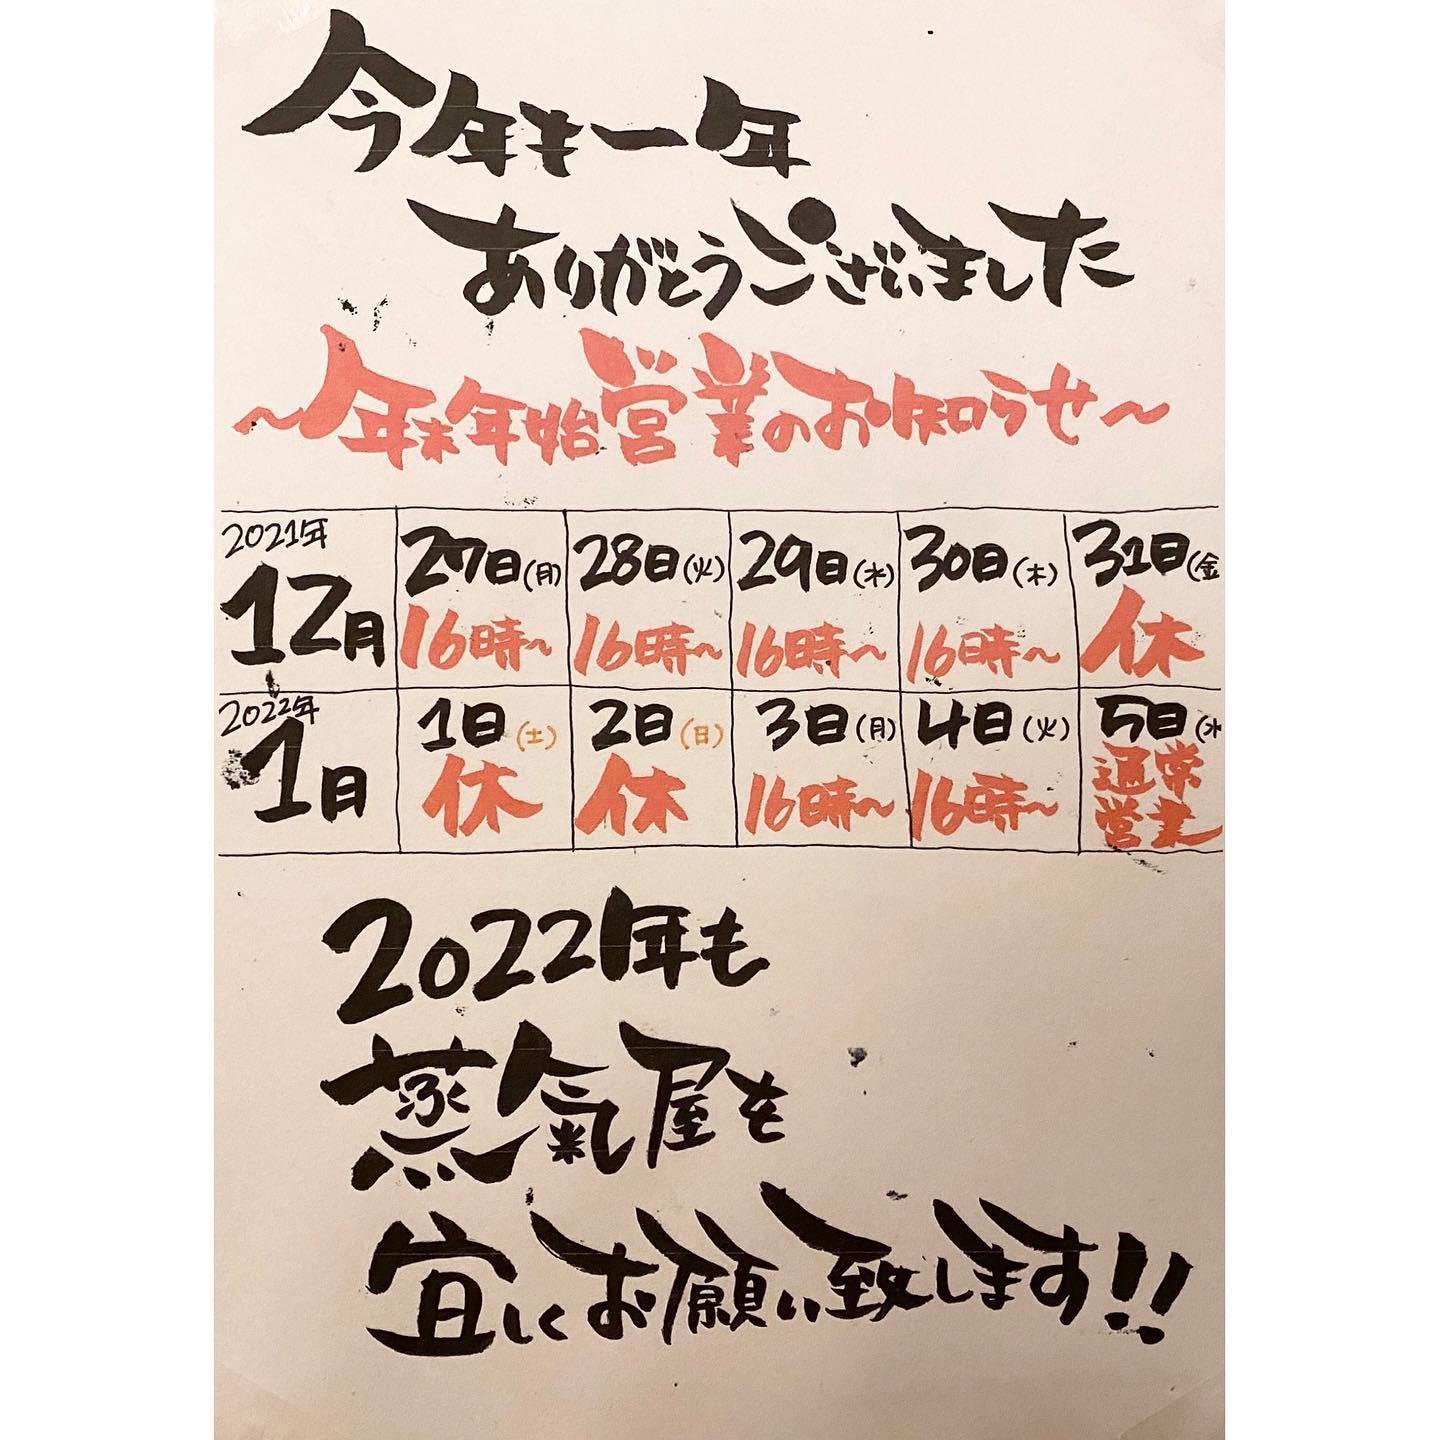 今年も一年
ありがとうございました
～年末年始営業のお知らせ～
2021年
12月
27日(月)
16時～
28日(火)
16時～
29日(水)
16時～
30日(木)
16時～
31日(金
休
2022年
1月
1日(土)
休
2日(日)
休
3日(月)
16時～
4日(火)
16時～
5日(水
通常
営業
2022年も
蒸氣屋を
宜しくお願い致します!!